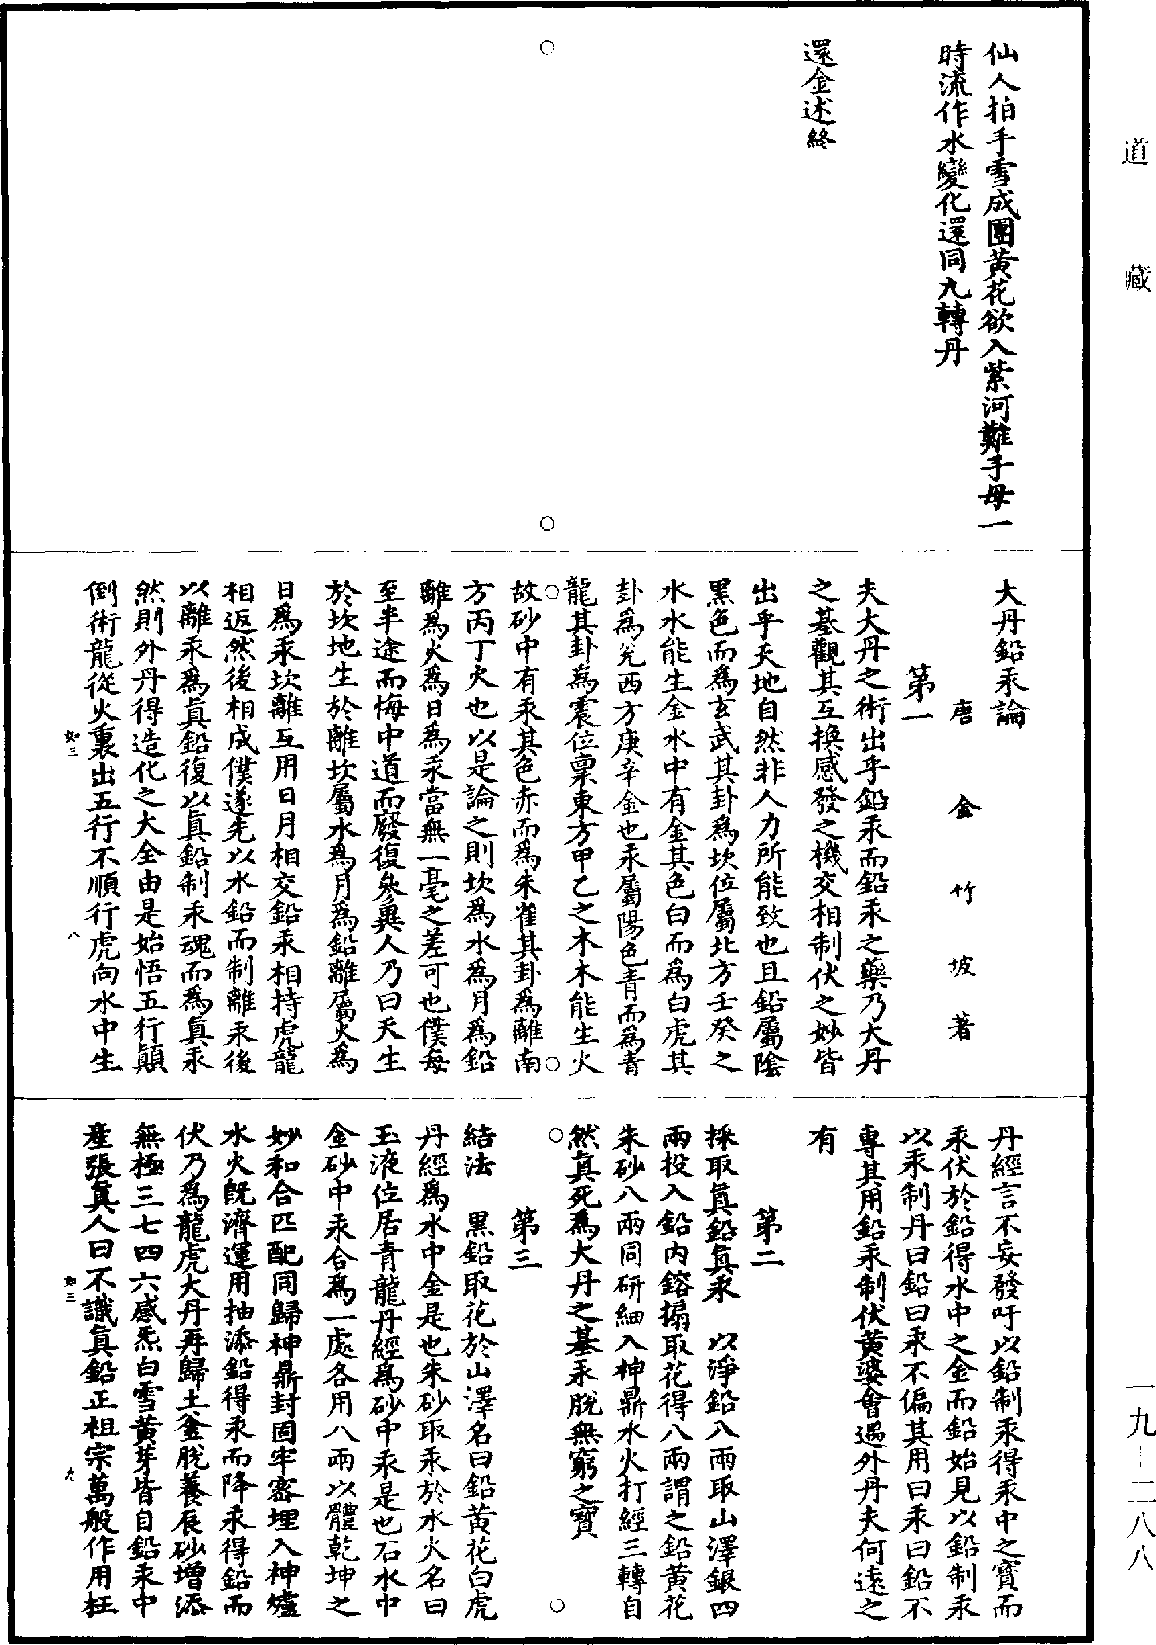 道藏
仙人拍手雪成團黃花欲入紫河難子母一
時流作水變化還同九轉丹
還金述終
大丹鉛汞論
唐金竹坡著
第一
夫大丹之術出乎鉛汞而鉛汞之藥乃大丹
之基觀其互換感發之機交相制伏之妙皆
出乎天地自然非人力所能致也且鉛屬陰
黑色而為玄武其卦為坎位屬北方壬癸之
水水能生金水中有金其色白而為白虎其
卦為兌西方庚辛金也汞屬陽色青而為青
龍其卦為震位稟東方甲乙之木木能生火
故砂中有汞其色赤而為朱雀其卦為離南
方丙丁火也以是論之則坎為水為月為鉛
離為火為日為汞當無一毫之差可也僕每
至半途而悔中道而廢復參異人乃曰天生
於坎地生於離坎屬水為月為鉛離屬火為
日為汞坎離互用日月相交鉛汞相持虎龍
相返然後相成僕遂先以水鉛而制離汞後
以離汞為眞鉛復以眞鉛制汞魂而為眞汞
然則外丹得造化之大全由是始悟五行顛
倒術龍從火裏出五行不順行虎向水中生
如三
八
丹經言不妄發吁以鉛制汞得汞中之寶而
汞伏於鉛得水中之金而鉛始見以鉛制汞
以汞制丹曰鉛曰汞不偏其用曰汞曰鉛不
專其用鉛汞制伏黃婆會遇外丹夫何遠之
有
第二
採取眞鉛眞汞　以淨鉛八兩取山澤銀四
兩投入鉛內鎔搨取花得八兩謂之鉛黃花
朱砂八兩同研細入神鼎水火打經三轉自
然眞死為大丹之基汞脫無窮之寶
第三
結法　黑鉛取花於山澤名曰鉛黃花白虎
丹經為水中金是也朱砂取汞於水火名曰
玉液位居青龍丹經為砂中汞是也石水中
金砂中汞合為一處各用八兩以體乾坤之
妙和合匹配同歸神鼎封固牢密埋入神爐
水火既濟運用抽添鉛得汞而降汞得鉛而
伏乃為龍虎大丹再歸土釜脫養辰砂增添
無極三七四六感炁白雪黃芽皆自鉛汞中
產張眞人曰不識眞鉛正祖宗萬般作用枉
如三
九
一九-二八八